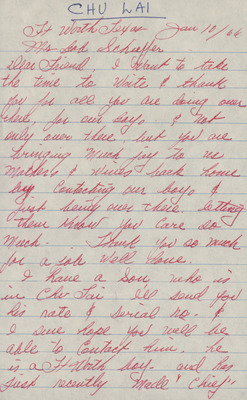 CHU LAI
Ft Worth Texas Jan 10/66
Mr Bob Schieffer
Dear Friend. I want to take
the time to write & thank
you for all you are doing over
there, for our boys. & not
only over there, but you are
bringing much joy to us
Mothers & Wives back home
by Contacting our boys &
just being over there. letting
them know you care so
much. Thank you so much
for a job well done.
I have a son, who is
in Chu Lai I'll send you
his rate & serial no. &
I sure hope you will be
able to Contact him he
is a Ft Worth boy. and has
just recently Made "Chief"